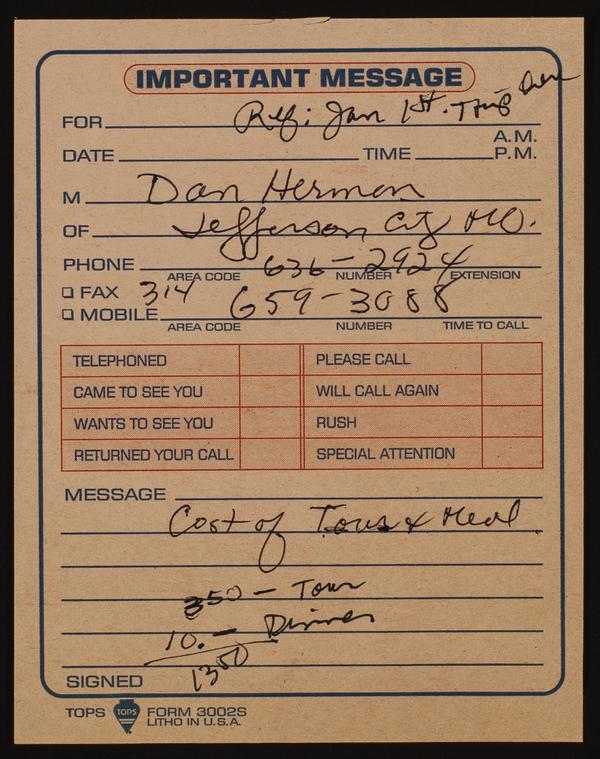 IMPORTANT MESSAGE
FOR Ref: Jan 1st. Trip
A.M.
DATE TIME P.M.
M Dan Herman
OF Jefferson City MO.
PHONE 636-2924
AREA CODE NUMBER EXTENSION
FAX 314 659-3088
MOBILE
AREA CODE NUMBER TIME TO CALL
TELEPHONED PLEASE CALL
CAME TO SEE YOU WILL CALL AGAIN
WANTS TO SEE YOU RUSH
RETURNED YOUR CALL SPECIAL ATTENTION
MESSAGE
Cost of Tour & Meal
350 - Tour
10. - Dinner
1350
SIGNED
TOPS TOPS FORM 3002S
LITHO IN U.S.A.